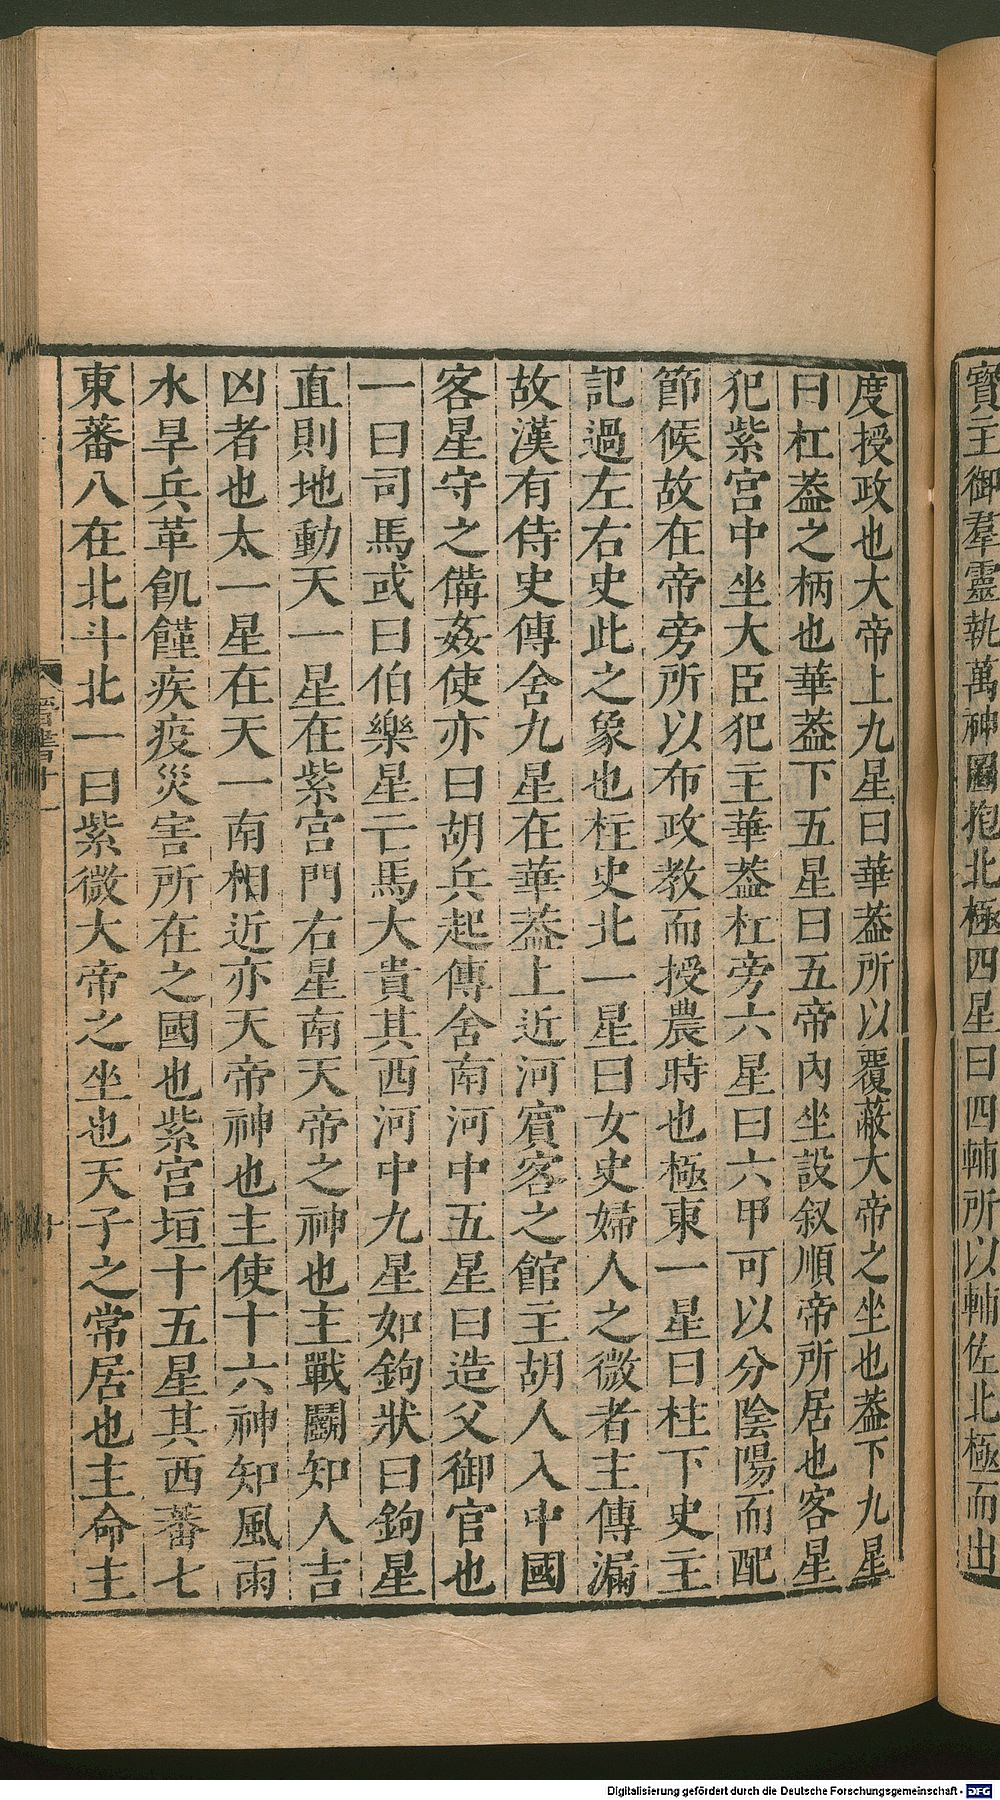 寳主御羣靈執萬神圖抱北極四星曰四輔所以輔佐北極而出
度授政也大帝上九星曰華葢所以覆蔽大帝之坐也葢下九星
曰杠葢之柄也華葢下五星曰五帝內坐設叙順帝所居也客星
犯紫宫中坐大臣犯主華葢杠旁六星曰六甲可以分陰陽而配
節候故在帝旁所以布政教而授農時也極東一星曰柱下史主
記過左右史此之象也柱史北一星曰女史婦人之微者主傳漏
故漢有侍史傳舍九星在華葢上近河賔客之館主胡人入中國
客星守之備姦使亦曰胡兵起傳舍南河中五星曰造父御官也
一曰司馬或曰伯樂星亡馬大貴其西河中九星如鉤狀曰鉤星
直則地動天一星在紫宫門右星南天帝之神也主戰鬭知人吉
凶者也太一星在天一南相近亦天帝神也主使十六神知風雨
水旱兵革飢饉疾疫災害所在之國也紫宫垣十五星其西蕃七
東蕃八在北斗北一曰紫微大帝之坐也天子之常居也主命主
晉書十一
十
Digitalisierung gefördert durch die Deutsche Forschungsgemeinschaft - DFG